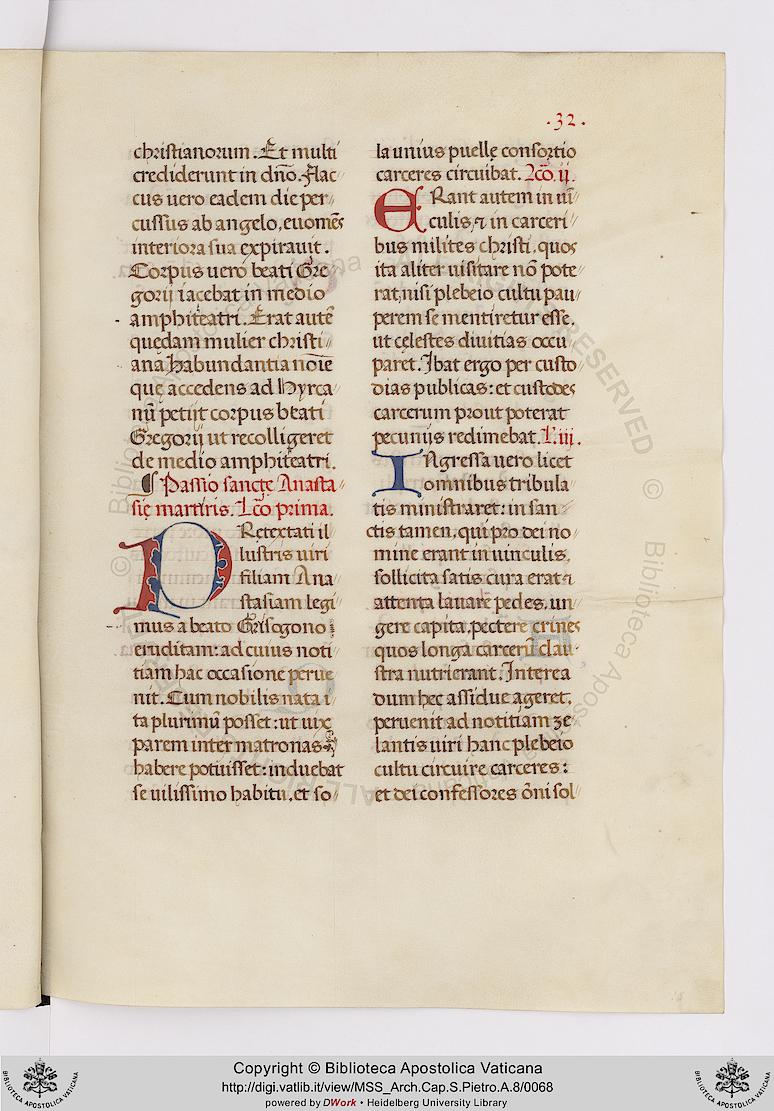 .32.
christianorum. Et multi
crediderunt in dño. Flac
cus uero eadem die per
cussus ab angelo, euomẽs
interiora sua expirauit.
Corpus uero beati Gre
gorij iacebat in medio
amphiteatri. Erat autẽ
quędam mulier christi
ana habundantia noĩe
quę accedens ad hyrca
nũ petijt corpus beati
Gregorij ut recolligeret
de medio amphiteatri.
¶ Passio sanctę Anasta
się martiris. Lc̃o prima.
PRetextati il
lustris uiri
filiam Ana
stasiam legi
mus a beato Grisogono
eruditam: ad cuius noti
tiam hac occasione perue
nit. Cum nobilis nata i
ta plurimũ posset: ut uix
parem inter matronas
habere potuisset: induebat
se uilissimo habitu, et so
la unius puellę consortio
carceres circuibat. Lc̃o. ij.
ERant autem in uĩ
culis, ⁊ in carceri
bus milites christi, quos
ita aliter uisitare nõ pote
rat, nisi plebeio cultu pau
perem se mentiretur esse,
ut cęlestes diuitias occu
paret. Ibat ergo per custo
dias publicas: et custodes
carcerum prout poterat
pecunijs redimebat. L. iij.
INgressa uero licet
omnibus tribula
tis ministraret: in san
ctis tamen, qui pro dei no
mine erant in uinculis,
sollicita satis cura erat ⁊
attenta lauare pedes, un
gere capita, pectere crines
quos longa carcerũ clau
stra nutrierant. Interea
dum hęc assidue ageret,
peruenit ad notitiam ze
lantis uiri hanc plebeio
cultu circuire carceres:
et dei confessores õni sol
Copyright © Biblioteca Apostolica Vaticana
http://digi.vatlib.it/view/MSS_Arch.Cap.S.Pietro.A.8/0068
powered by DWork • Heidelberg University Library
BIBLIOTECA APOSTOLICA VATICANA
BIBLIOTECA APOSTOLICA VATICANA